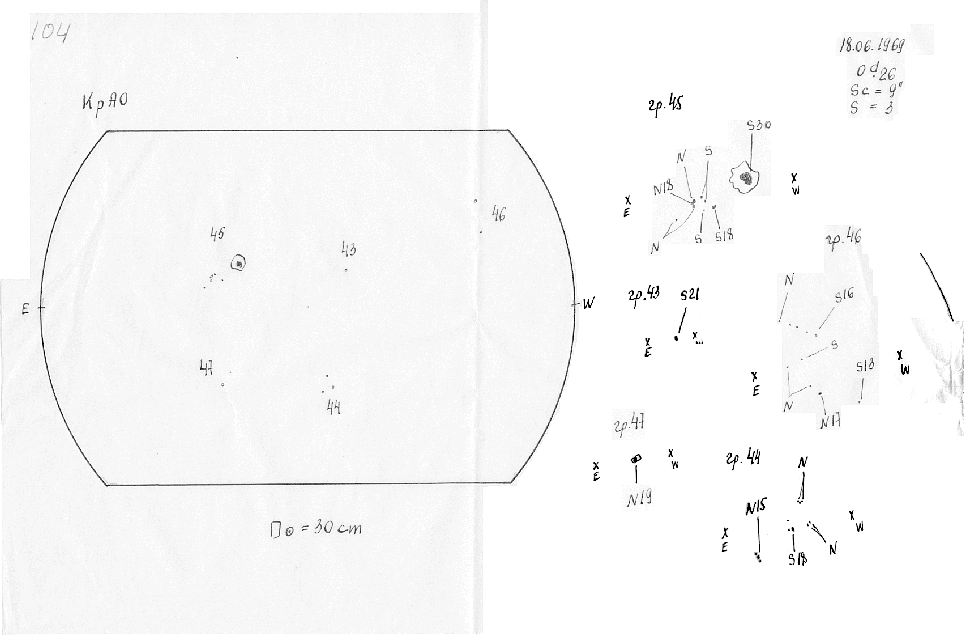 104
КрАО
45
43
46
E
W
47
44
D⊙ = 30 cm
18.06.1969
0d.26
Sc = 9"
S = 3
гр. 45
S30
N
S
N18
x
E
x
W
N
S
S18
гр. 46
N
S16
S
S18
x
E
x
W
N
N17
гр. 43
S21
x
E
x
гр. 47
x
E
x
W
N19
гр. 44
N
N15
x
E
x
W
S18
N